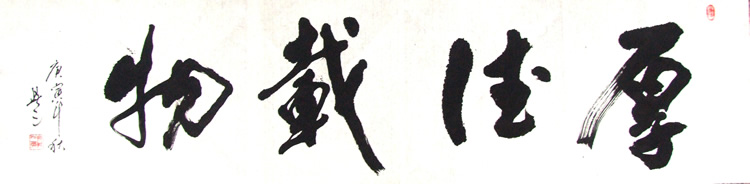 厚德載物
庚寅年秋